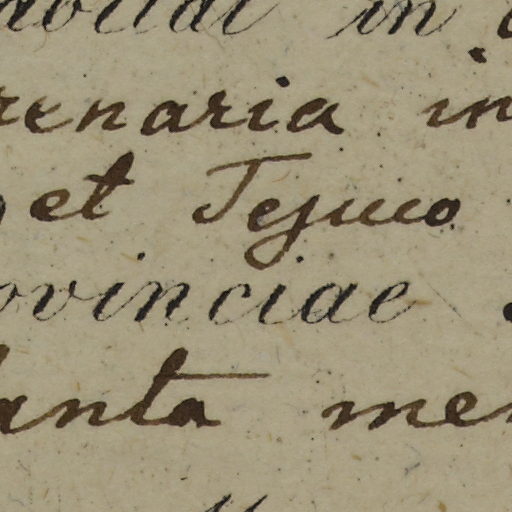 in
renaria in
et Tejuco
ovinciae
anta mer